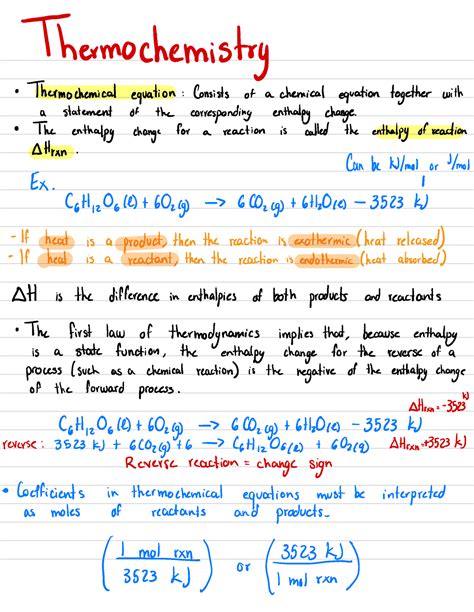 Thermochemistry
• Thermochemical equation : Consists of a chemical equation together with
a statement of the corresponding enthalpy change.
• The enthalpy change for a reaction is called the enthalpy of reaction
ΔHrxn .
Can be kJ/mol or J/mol
Ex.
C₆H₁₂O₆(l) + 6O₂(g) → 6CO₂(g) + 6H₂O(l) − 3523 kJ
- If heat is a product, then the reaction is exothermic (heat released)
- If heat is a reactant, then the reaction is endothermic (heat absorbed)
ΔH is the difference in enthalpies of both products and reactants
• The first law of thermodynamics implies that, because enthalpy
is a state function, the enthalpy change for the reverse of a
process (such as a chemical reaction) is the negative of the enthalpy change
of the forward process.
ΔHrxn = -3523 kJ
C₆H₁₂O₆(l) + 6O₂(g) → 6CO₂(g) + 6H₂O(l) − 3523 kJ
reverse : 3523 kJ + 6CO₂(g) + 6 → C₆H₁₂O₆(l) + 6O₂(g) ΔHrxn = +3523 kJ
Reverse reaction = change sign
• Coefficients in thermochemical equations must be interpreted
as moles of reactants and products.
(1 mol rxn / 3523 kJ) or (3523 kJ / 1 mol rxn)